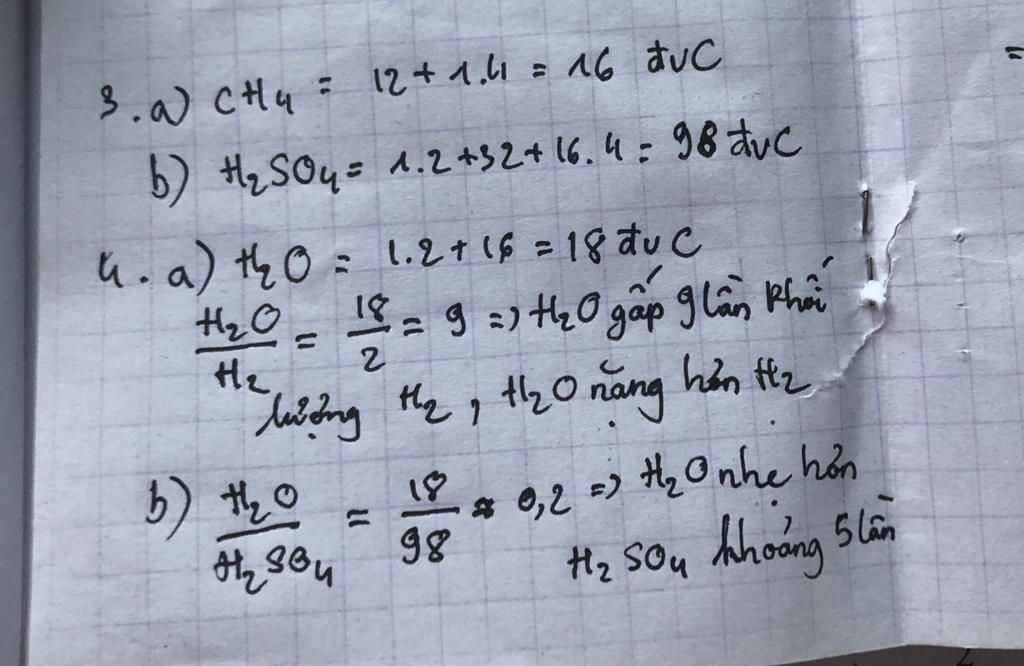 3. a) CH₄ = 12 + 1.4 = 16 đvC
b) H₂SO₄ = 1.2 + 32 + 16.4 = 98 đvC
4. a) H₂O = 1.2 + 16 = 18 đvC
H₂O/H₂ = 18/2 = 9 => H₂O gấp 9 lần khối
lượng H₂, H₂O nặng hơn H₂
b) H₂O/H₂SO₄ = 18/98 ≈ 0,2 => H₂O nhẹ hơn
H₂SO₄ khoảng 5 lần